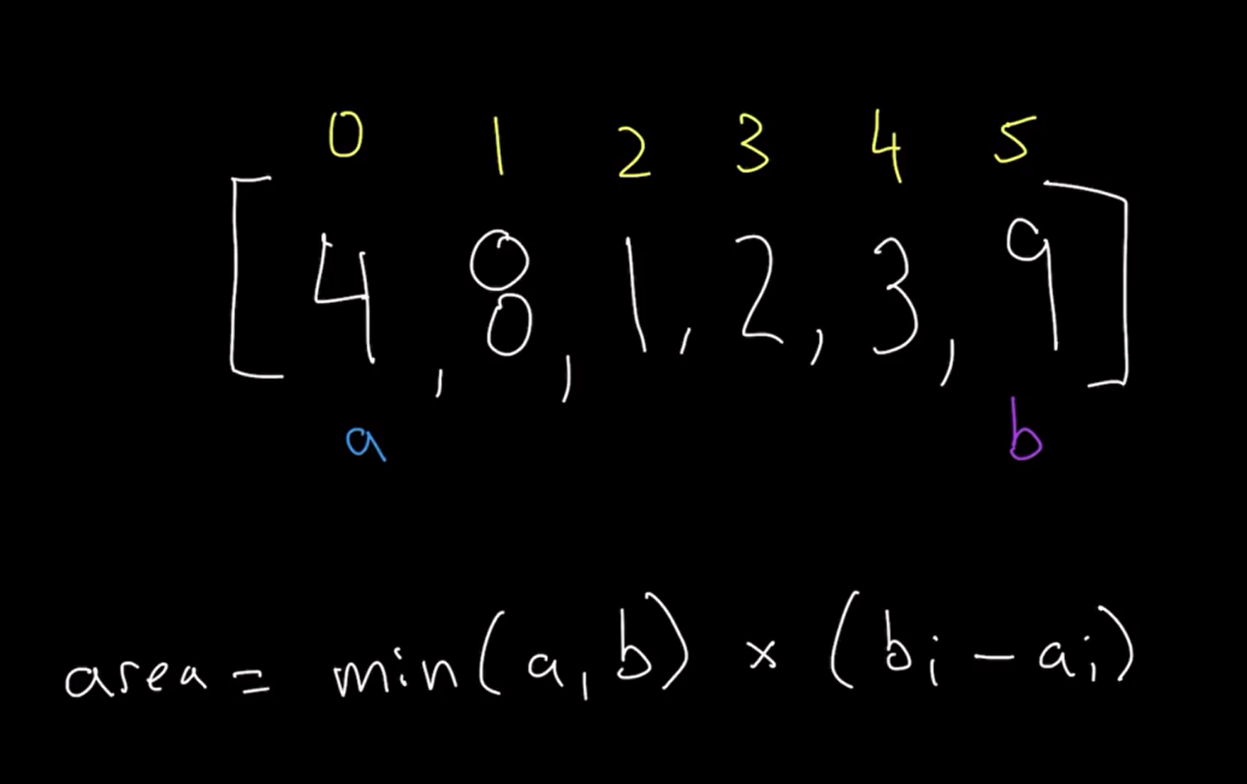 0 1 2 3 4 5
[4, 8, 1, 2, 3, 9]
a b
area = min(a, b) × (bi − ai)